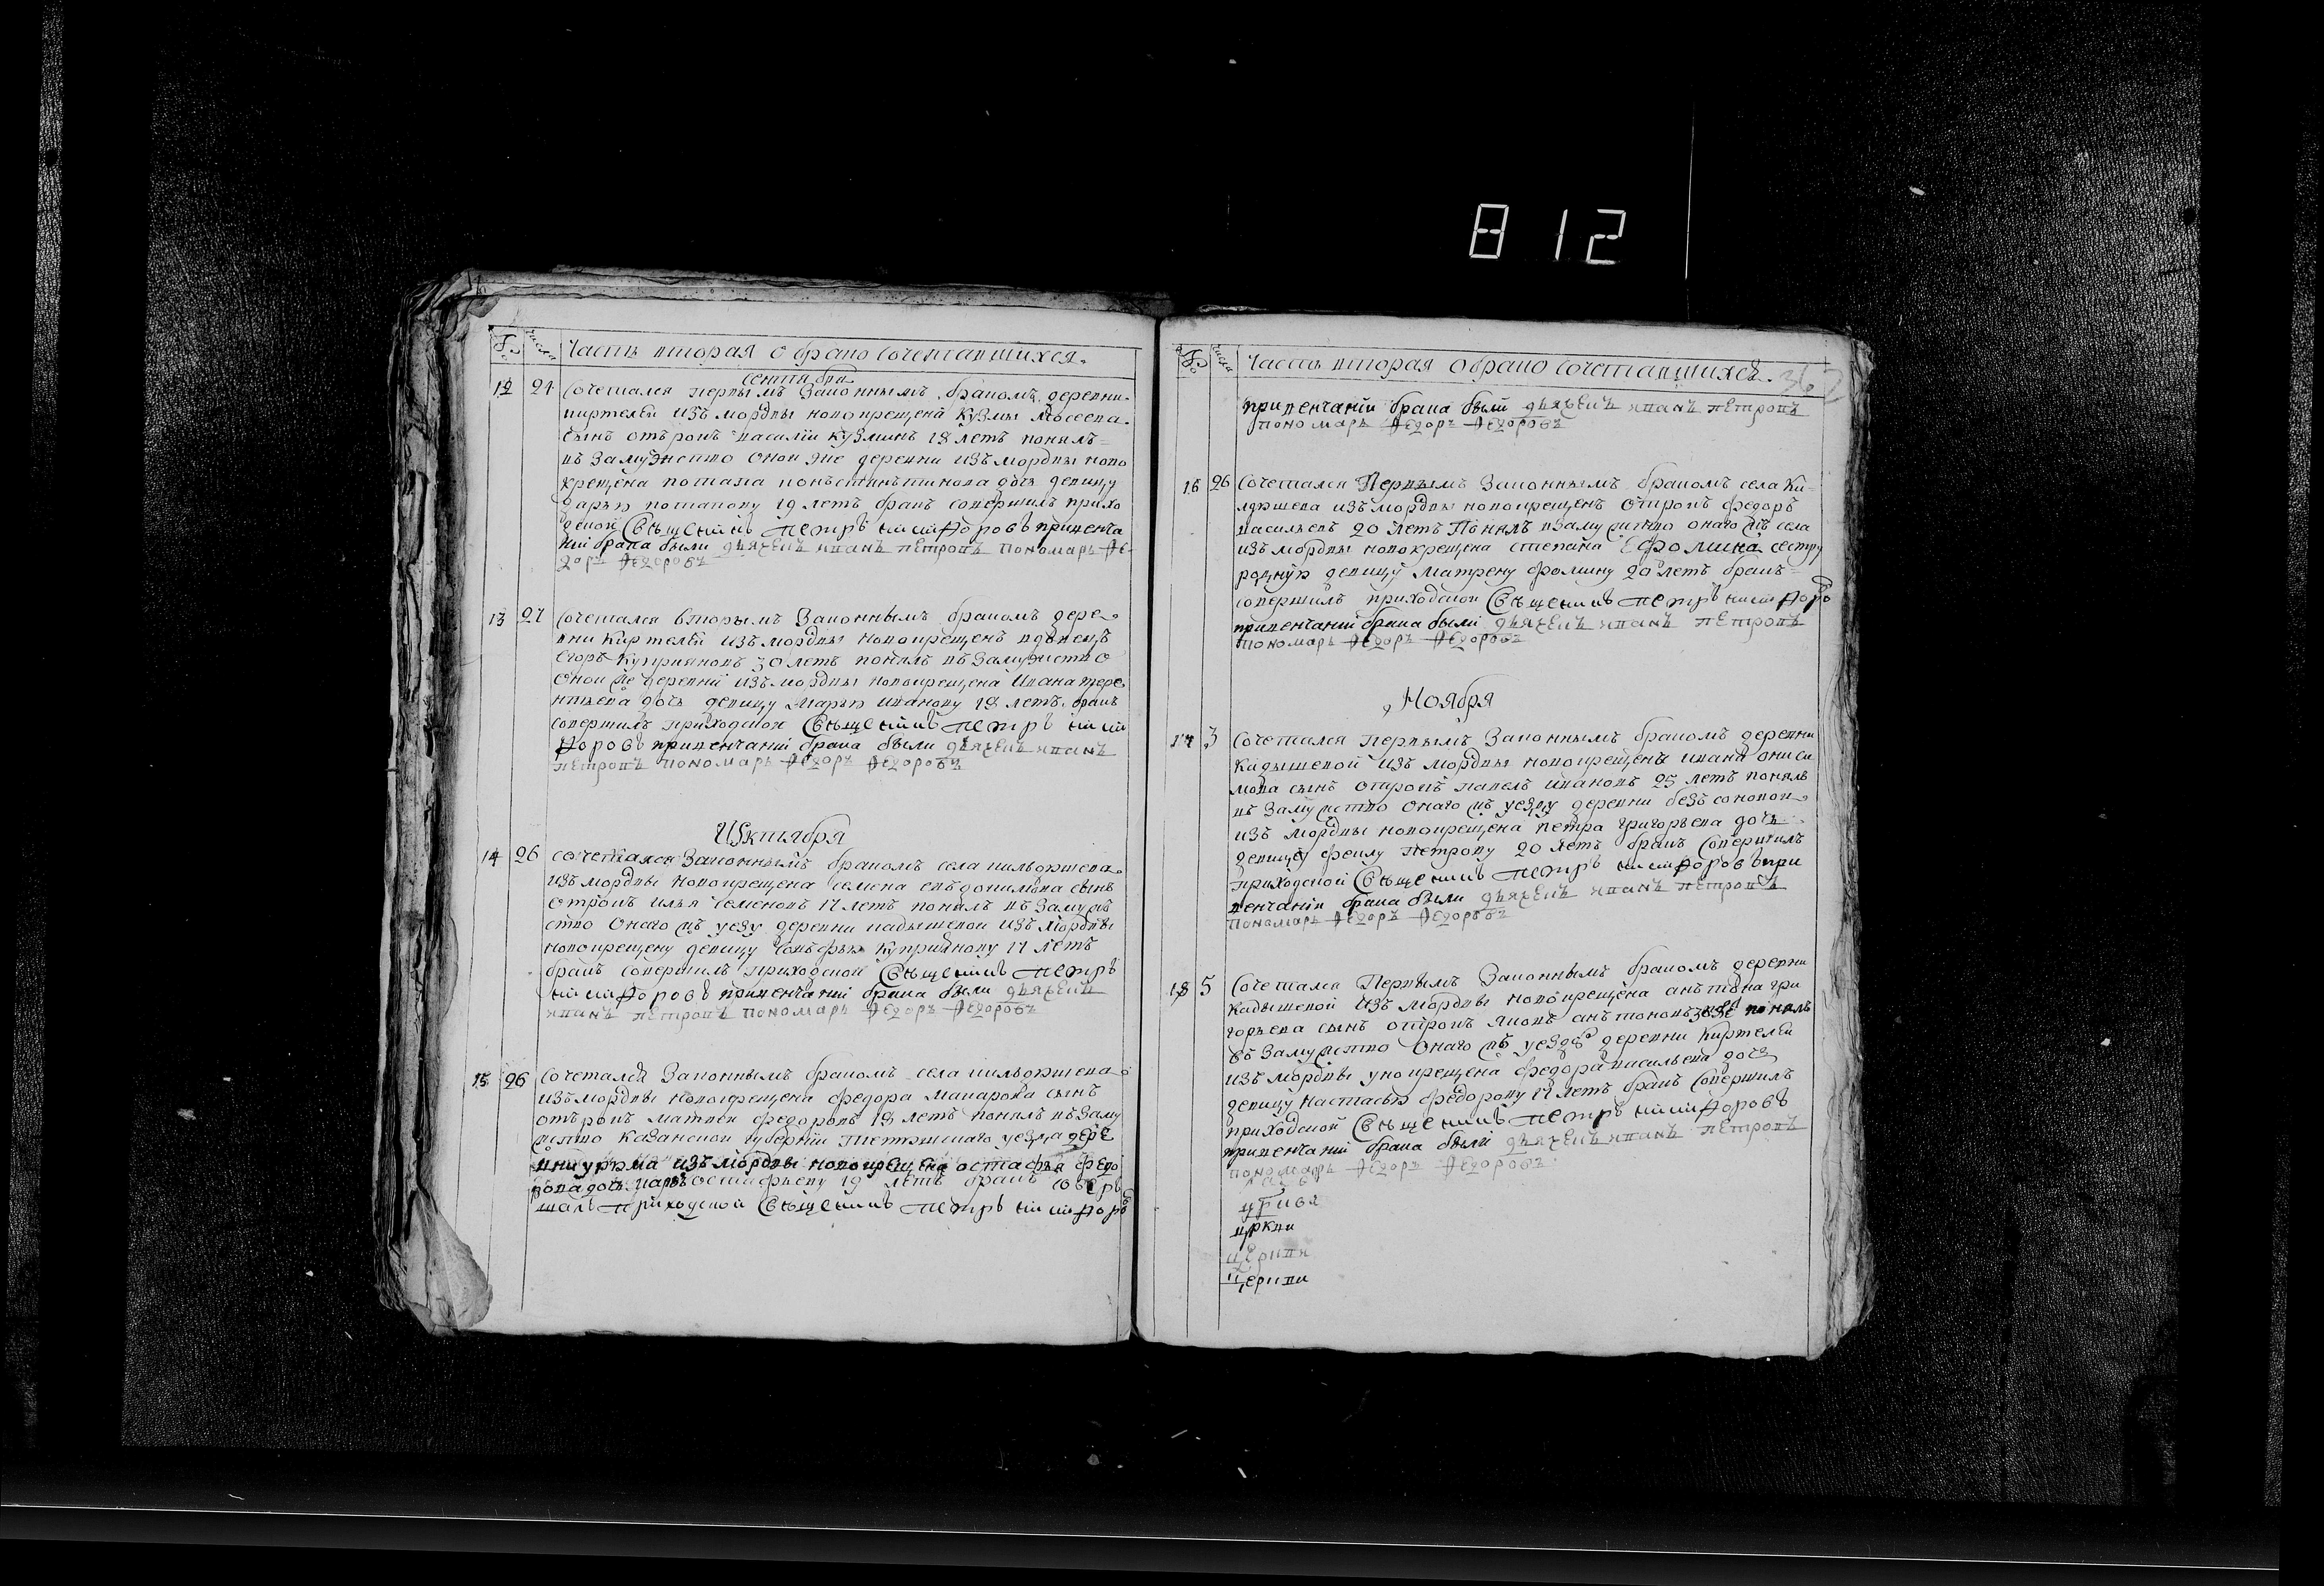 812
№ числа Часть вторая о брако сочетавшихся.
сентября
12 24 Сочетался первымъ Законнымъ бракомъ деревни
киртелей изъ мордвы новокрещена Кузмы Мосеева
сынъ отърокъ василiи кузминъ 18 летъ понялъ
въ Замужество оной же деревни изъ мордвы ново
крещена потапа конъстантинова дочь девицу
дарью потапову 19 летъ бракъ совершилъ прихо
дской Священникъ петръ никифоровъ привенча
нiи брака были дьячекъ иванъ петровъ пономарь фе
доръ федоровъ
13 27 Сочетался вторымъ Законнымъ бракомъ дере
вни Киртелей изъ мордвы новокрещенъ вдовецъ
Егоръ Куприяновъ 30 летъ понялъ въ Замужество
Оной же деревни изъ мордвы новокрещена Ивана тере
нтьева дочь девицу Марью иванову 18 летъ. бракъ
совершилъ приходской Священникъ петръ ники
форовъ привенчанiи брака были дьячекъ иванъ
петровъ пономарь федоръ федоровъ
Октября
14 26 сочетался Законнымъ бракомъ села
изъ мордвы новокрещена семена евъдокимова сынъ
отрокъ илья семеновъ 17 летъ понялъ въ Замуже
ство Онаго жъ уезду деревни кадышевой изъ мордвы
новокрещену девицу Куприянову 17 летъ
бракъ совершилъ приходской Священникъ петръ
никифоровъ привенчанiи брака были дьячекъ
иванъ петровъ пономарь федоръ федоровъ
15 26 Сочетался Законнымъ бракомъ села
изъ мордвы новокрещена федора макарова сынъ
отърокъ матвеи федоровъ 18 летъ понялъ въ Заму
жство Казанской губернiи Тетюшскаго уезда дере
вни урюма изъ мордвы новокрещена остафья федо
рова дочь марью остафьеву 19 летъ бракъ совер
шалъ приходской Священникъ петръ никифоро
№ числа Часть вторая о брако сочетавшихся.
привенчанiи брака были дьячекъ иванъ петровъ
пономарь федоръ федоровъ
16 26 Сочетался Первымъ Законнымъ бракомъ села Ки
изъ мордвы новокрещенъ Отрокъ федоръ
васильевъ 20 летъ Понялъ взамужство онаго жъ села
изъ мордвы новокрещена степана Ефомина сестру
родную девицу Матрену фомину 20 летъ бракъ
совершилъ приходской Священникъ петръ никифоро
привенчанiи брака были дьячекъ иванъ петровъ
пономарь федоръ федоровъ
Ноября
17 3 Сочетался Первымъ Законнымъ бракомъ деревни
Кадышевой изъ мордвы новокрещенъ ивана ониси
мова сынъ отрокъ павелъ ивановъ 25 летъ понялъ
въ Замужство онаго жъ уезду деревни безъ соновои
изъ мордвы новокрещена петра григорьева дочь
девицу феклу петрову 20 летъ бракъ Совершилъ
приходской Священникъ петръ никифоровъ при
венчанiи брака были дьячекъ иванъ петровъ
пономарь федоръ федоровъ
18 5 Сочетался Первымъ Законнымъ бракомъ деревни
Кадышевой изъ мордвы новокрещена анътона гри
горьева сынъ отрокъ яковъ анътоновъ понялъ
въ Замужство Онаго жъ уезда деревни Киртелей
изъ мордвы новокрещена федора васильева дочь
девицу Настасью федорову 17 летъ бракъ Совершилъ
приходской Священникъ петръ никифоровъ
привенчанiи брака были дьячекъ иванъ петровъ
пономарь федоръ федоровъ
цркви
церкви